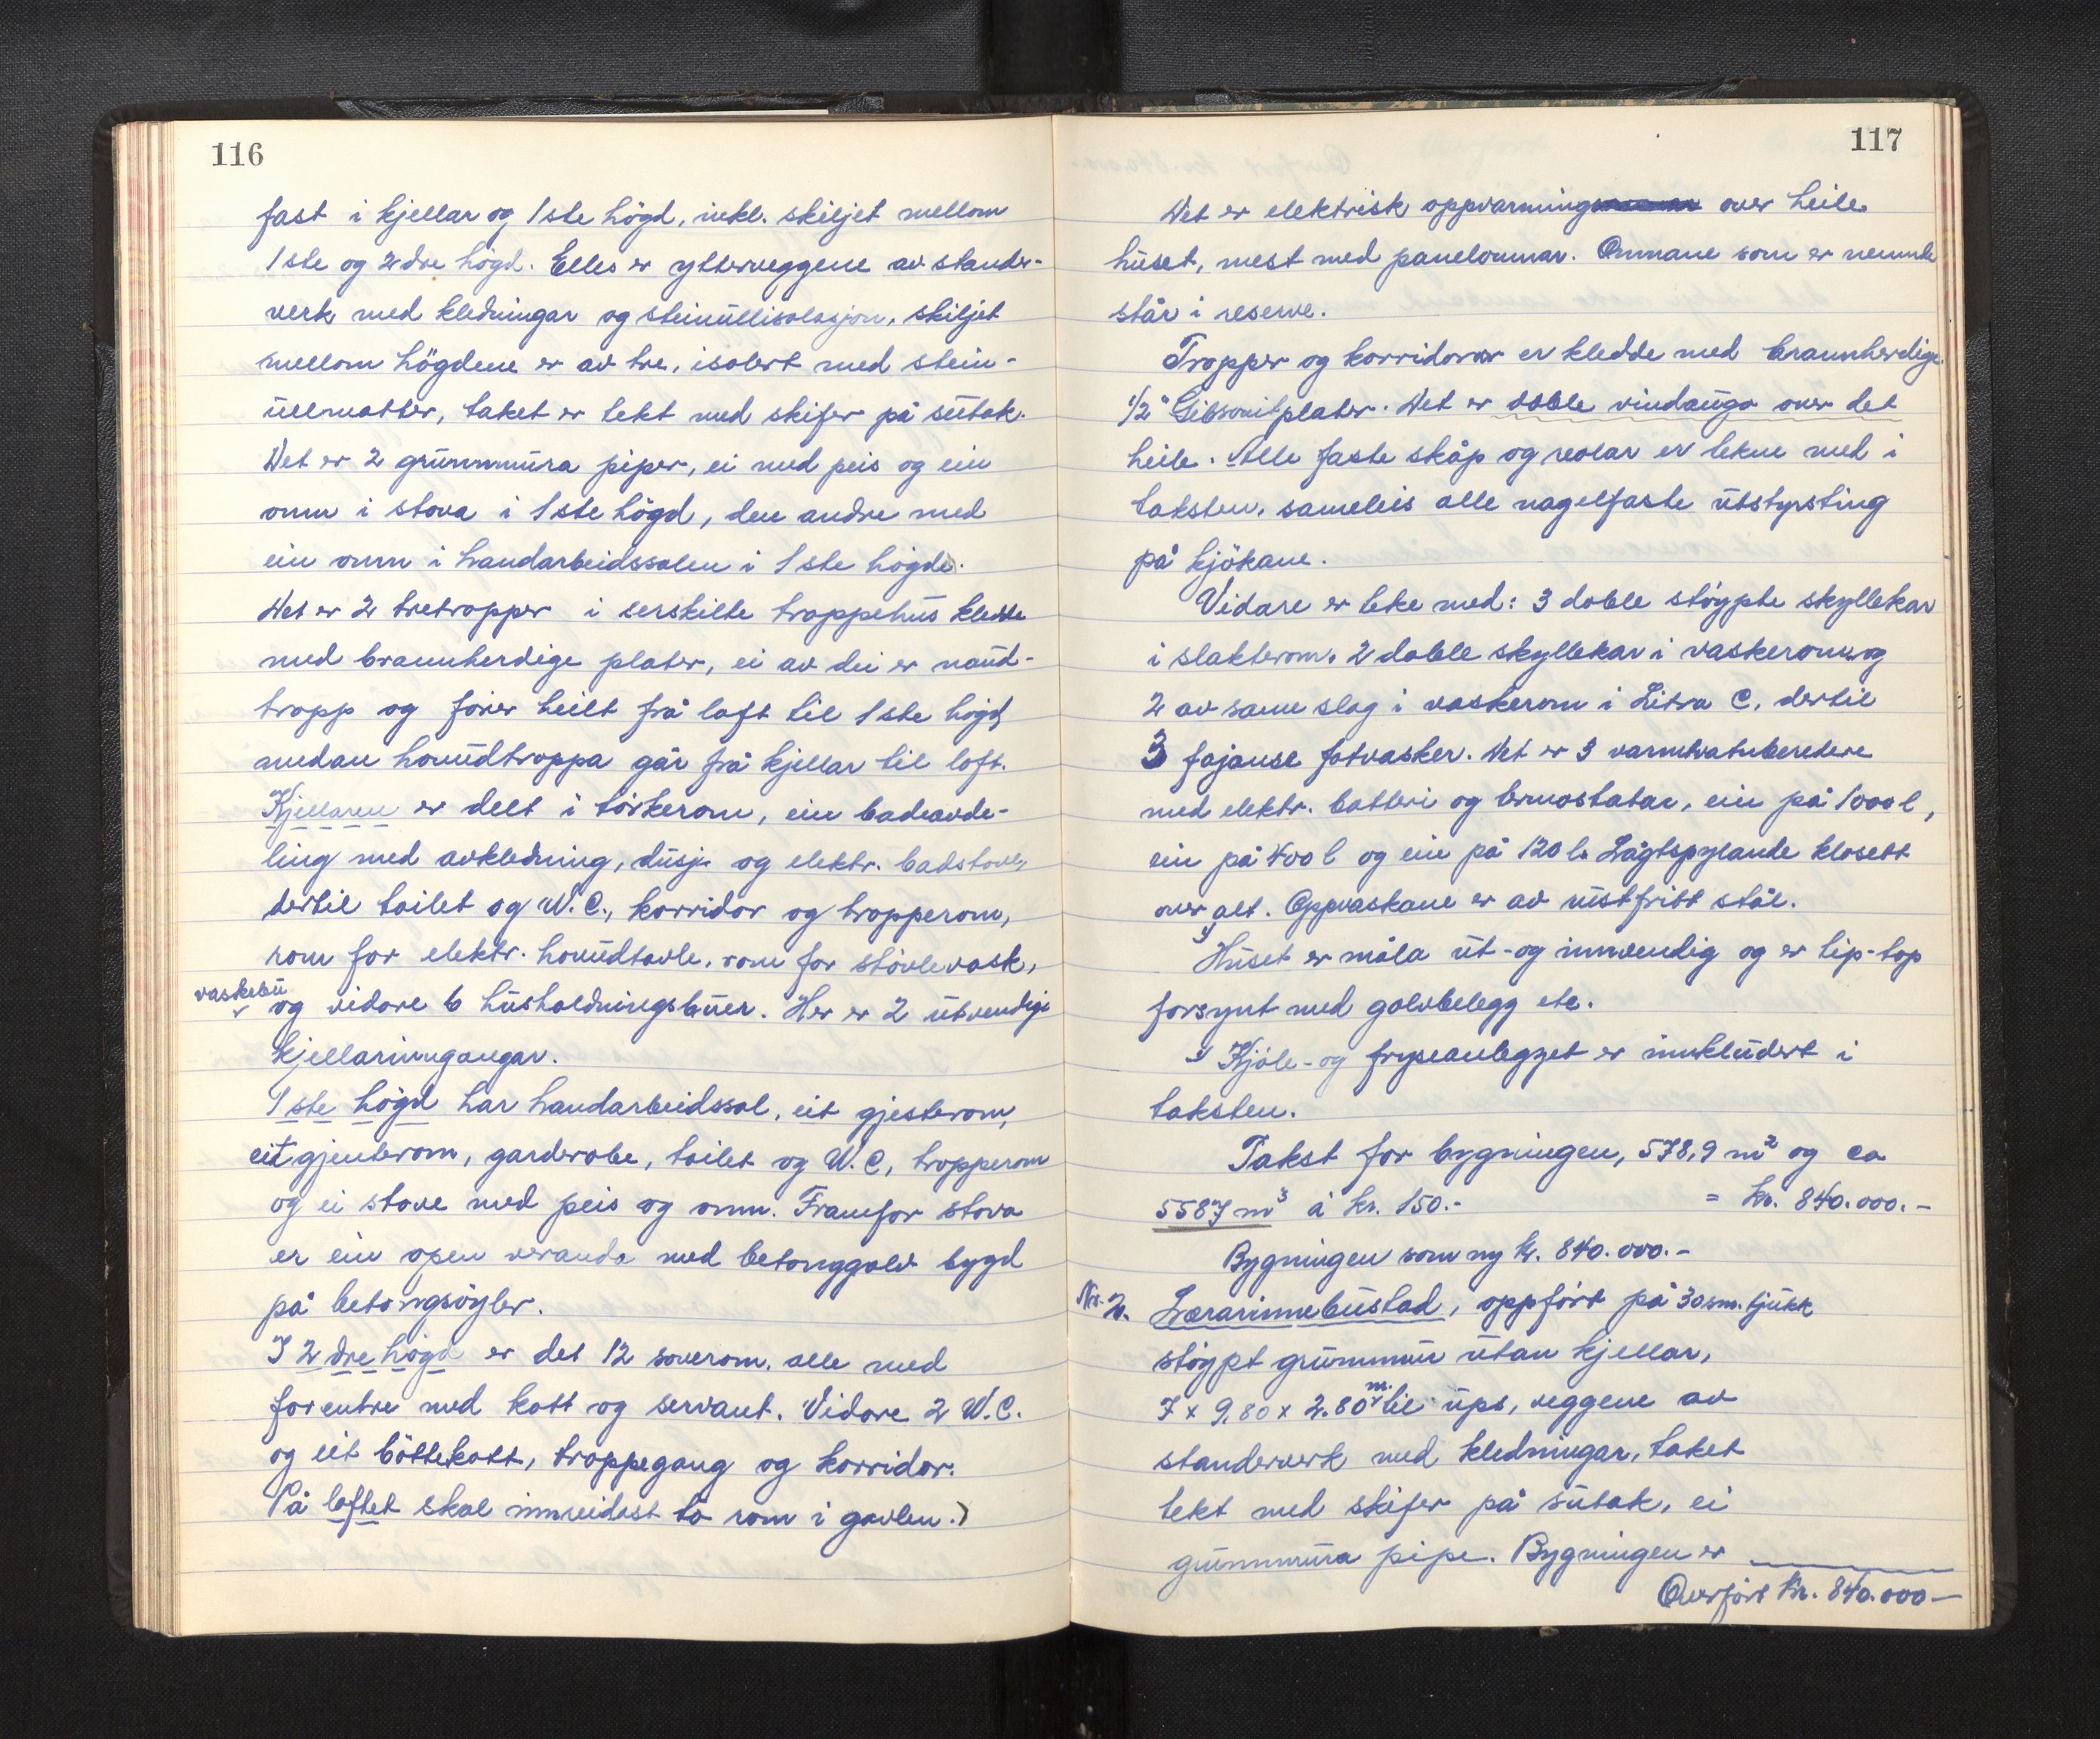 116
fast i kjellar og 1ste högd, inkl. skiljet mellom
1ste og 2dre högd. Elles er ytterveggene av stender-
verk med kledningar og steinullisolasjon, skiljet
mellom högdene er av tre, isolert med stein-
ullmatter, taket er tekt med skifer på sutak.
Det er 2 grunnmura piper, ei med peis og ein
omn i stova i 1ste högd, den andre med
ein omn i handarbeidssalen i 1ste högd.
Det er 2 tretropper i serskilte troppehus kledde
med brannherdige plater, ei av dei er naud-
tropp og förer heilt frå loft til 1ste högd
medan hovudtroppa går frå kjellar til loft.
Kjellaren er delt i törkerom, ein badeavde-
ling med avkledning, dusj og elektr. badstove,
dertil toilet og W.C., korridor og tropperom,
rom for elektr. hovudtavle, rom for stövlevask,
vaskebu
og vidare 6 husholdningsbuer. Her er 2 utvendige
kjellarinngangar.
1ste högd har handarbeidssal, eit gjesterom,
eit gjenterom, garderobe, toilet og W.C, tropperom
og ei stove med peis og omn. Framfor stova
er ein open veranda med betonggolv bygd
på betongsöyler.
I 2dre högd er det 12 soverom, alle med
forentre med kott og servant. Vidare 2 W.C.
og eit böttekott, troppegang og korridor.
På loftet skal innreidast to rom i gavlen.)
117
Det er elektrisk oppvarming over heile
huset, mest med panelomnar. Omnane som er nemnde
står i reserve.
Tropper og korridorar er kledde med brannherdige
1/2" Gibsonitplater. Det er doble vindaugo over det
heile. Alle faste skåp og reolar er tekne med i
taksten, sameleis alle nagelfaste utstyrsting
på kjökane.
Vidare er teke med: 3 doble stöypte skyllekar
i slakterom. 2 doble skyllekar i vaskerom og
2 av same slag i vaskerom i Litra C, dertil
3 fajanse fotvasker. Det er 3 varmtvatnberedere
med elektr. batteri og termostatar, ein på 1000 l,
ein på 400 l og ein på 120 l. Lågtspylande klosett
over alt. Oppvaskane er av rustfritt stål.
Huset er måla ut- og innvendig og er tip-top
forsynt med golvbelegg etc.
Kjöle- og fryseanlegget er innkludert i
taksten.
Takst for bygningen, 578,9 m² og ca
5587 m³ á kr. 150.- = kr. 840.000.-
Bygningen som ny kr. 840.000.-
Nr. 2. Lærarinnebustad, oppfört på 30 sm. tjukk
stöypt grunnmur utan kjellar,
7 x 9,80 x 2.80 m. til ups, veggene av
standerverk med kledningar, taket
tekt med skifer på sutak, ei
grunnmura pipe. Bygningen er
Overfört kr. 840.000-